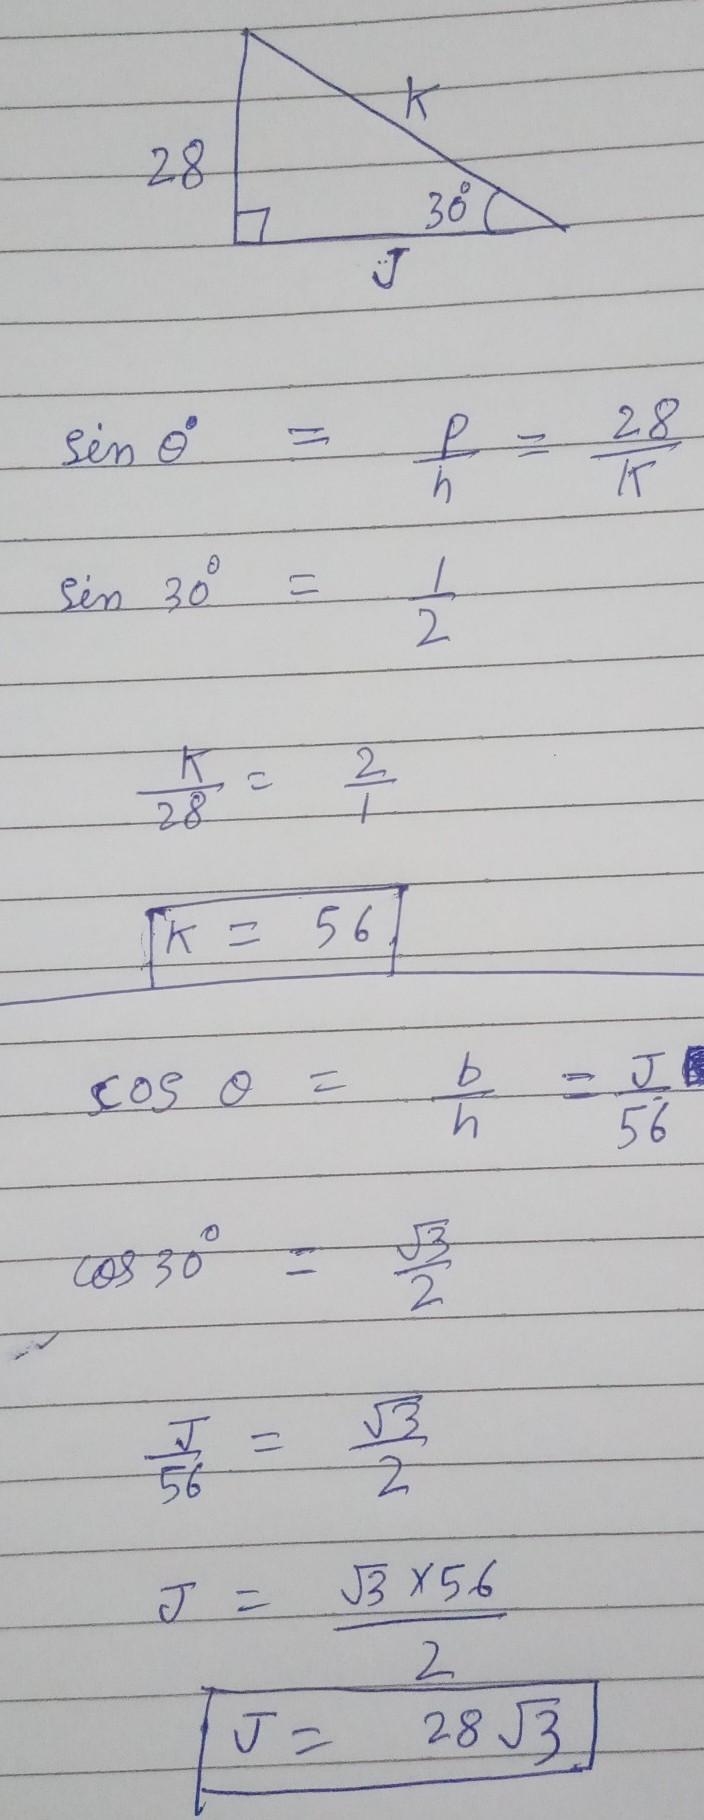 K
28
30°
J
sin θ° = p/h = 28/K
sin 30° = 1/2
K/28 = 2/1
K = 56
cos θ = b/h = J/56
cos 30° = √3/2
J/56 = √3/2
J = √3 × 56/2
J = 28√3